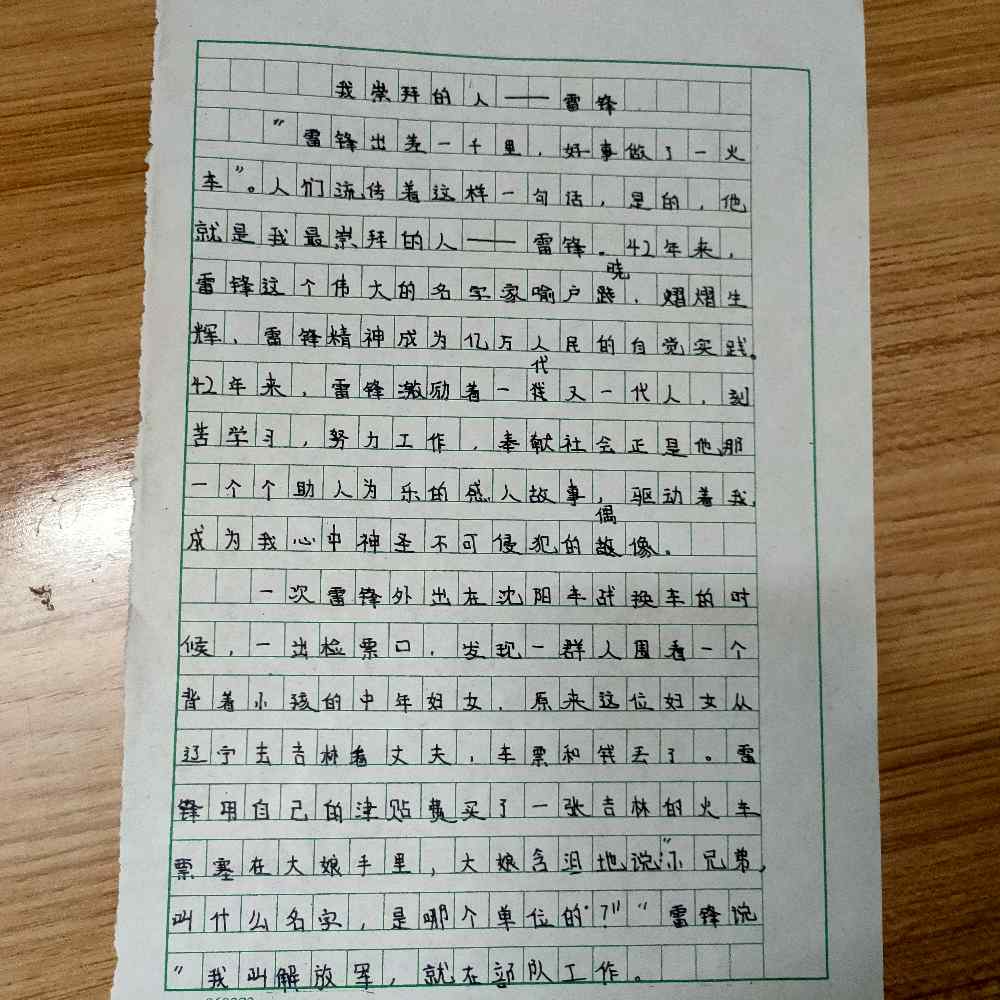 我崇拜的人——雷锋
“雷锋出差一千里，好事做了一火
车”。人们流传着这样一句话，是的，他
就是我最崇拜的人——雷锋。42年来，
雷锋这个伟大的名字家喻户晓，熠熠生
辉、雷锋精神成为亿万人民的自觉实践。
42年来，雷锋激励着一代又一代人，刻
苦学习，努力工作，奉献社会正是他那
一个个助人为乐的感人故事，驱动着我，
成为我心中神圣不可侵犯的偶像。
一次雷锋外出在沈阳车战换车的时
候，一出检票口，发现一群人围看一个
背着小孩的中年妇女，原来这位妇女从
辽宁去吉林看丈夫，车票和钱丢了。雷
锋用自己的津贴费买了一张吉林的火车
票塞在大娘手里，大娘含泪地说：“小兄弟，
叫什么名字，是哪个单位的？”“雷锋说
“我叫解放军，就在部队工作。